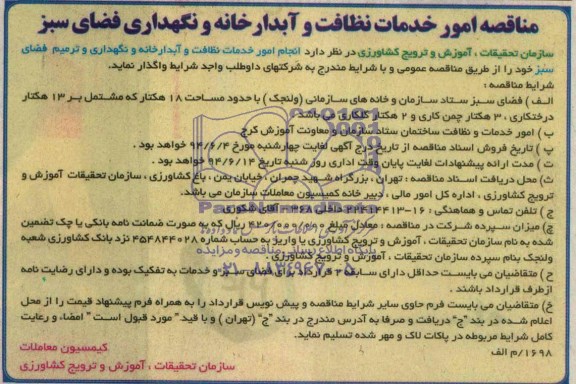 مناقصه امور خدمات نظافت و آبدارخانه و نگهداری فضای سبز
سازمان تحقیقات ، آموزش و ترویج کشاورزی در نظر دارد انجام امور خدمات نظافت و آبدارخانه و نگهداری و ترمیم فضای
سبز خود را از طریق مناقصه عمومی و با شرایط مندرج به شرکتهای داوطلب واجد شرایط واگذار نماید.
شرایط مناقصه :
الف ) فضای سبز ستاد سازمان و خانه های سازمانی (ولنجک ) با حدود مساحت ۱۸ هکتار که مشتمل بر ۱۳ هکتار
درختکاری ، ۳ هکتار چمن کاری و ۲ هکتار گلکاری می باشد .
ب ) امور خدمات و نظافت ساختمان ستاد سازمان و معاونت آموزش کرج
پ ) تاریخ فروش اسناد مناقصه از تاریخ درج آگهی لغایت چهارشنبه مورخ ۹۴/۶/۴ خواهد بود .
ت ) مدت ارائه پیشنهادات لغایت پایان وقت اداری روز شنبه تاریخ ۹۴/۶/۱۴ خواهد بود .
ث ) محل دریافت اسناد مناقصه : تهران ، بزرگراه شهید چمران ، خیابان یمن ، باغ کشاورزی ، سازمان تحقیقات آموزش و
ترویج کشاورزی ، اداره کل امور مالی ، دبیر خانه کمیسیون معاملات سازمان می باشد.
ج ) تلفن تماس و هماهنگی : ۱۶-۲۲۴۱۴۴۱۳ داخلی آقای شکوری
چ ) میزان سپرده شرکت در مناقصه : معادل مبلغ ریال که به صورت ضمانت نامه بانکی یا چک تضمین
شده به نام سازمان تحقیقات ، آموزش و ترویج کشاورزی یا واریز به حساب شماره ۴۵۴۸۴۴۰۲۸ نزد بانک کشاورزی شعبه
ولنجک بنام سپرده سازمان تحقیقات ، آموزش و ترویج کشاورزی .
ح ) متقاضیان می بایست حداقل دارای سابقه ۲ قرارداد برای فضای سبز و خدمات به تفکیک بوده و دارای رضایت نامه
ازطرف قرارداد باشند .
خ ) متقاضیان می بایست فرم حاوی سایر شرایط مناقصه و پیش نویس قرارداد را به همراه فرم پیشنهاد قیمت را از محل
اعلام شده در بند "ج" دریافت و صرفا به آدرس مندرج در بند "ج" (تهران ) و با قید " مورد قبول است " امضاء و رعایت
کامل شرایط مربوطه در پاکات لاک و مهر شده تسلیم نماید.
۱۶۹۸/م الف
کیمسیون معاملات
سازمان تحقیقات ، آموزش و ترویج کشاورزی